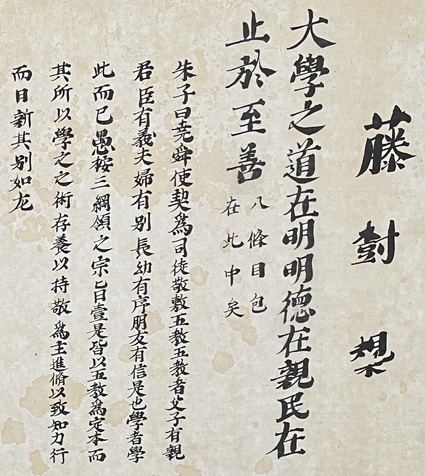 藤樹槼
大學之道在明明德在親民在
止於至善
八條目包
在此中矣
朱子曰堯舜使契爲司徒敬敷五教五教者父子有親
君臣有義夫婦有别長幼有序朋友有信是也學者學
此而已愚按三綱領之宗旨壹是皆以五教爲定本而
其所以學之之術存養以持敬爲主進脩以致知力行
而日新其别如左